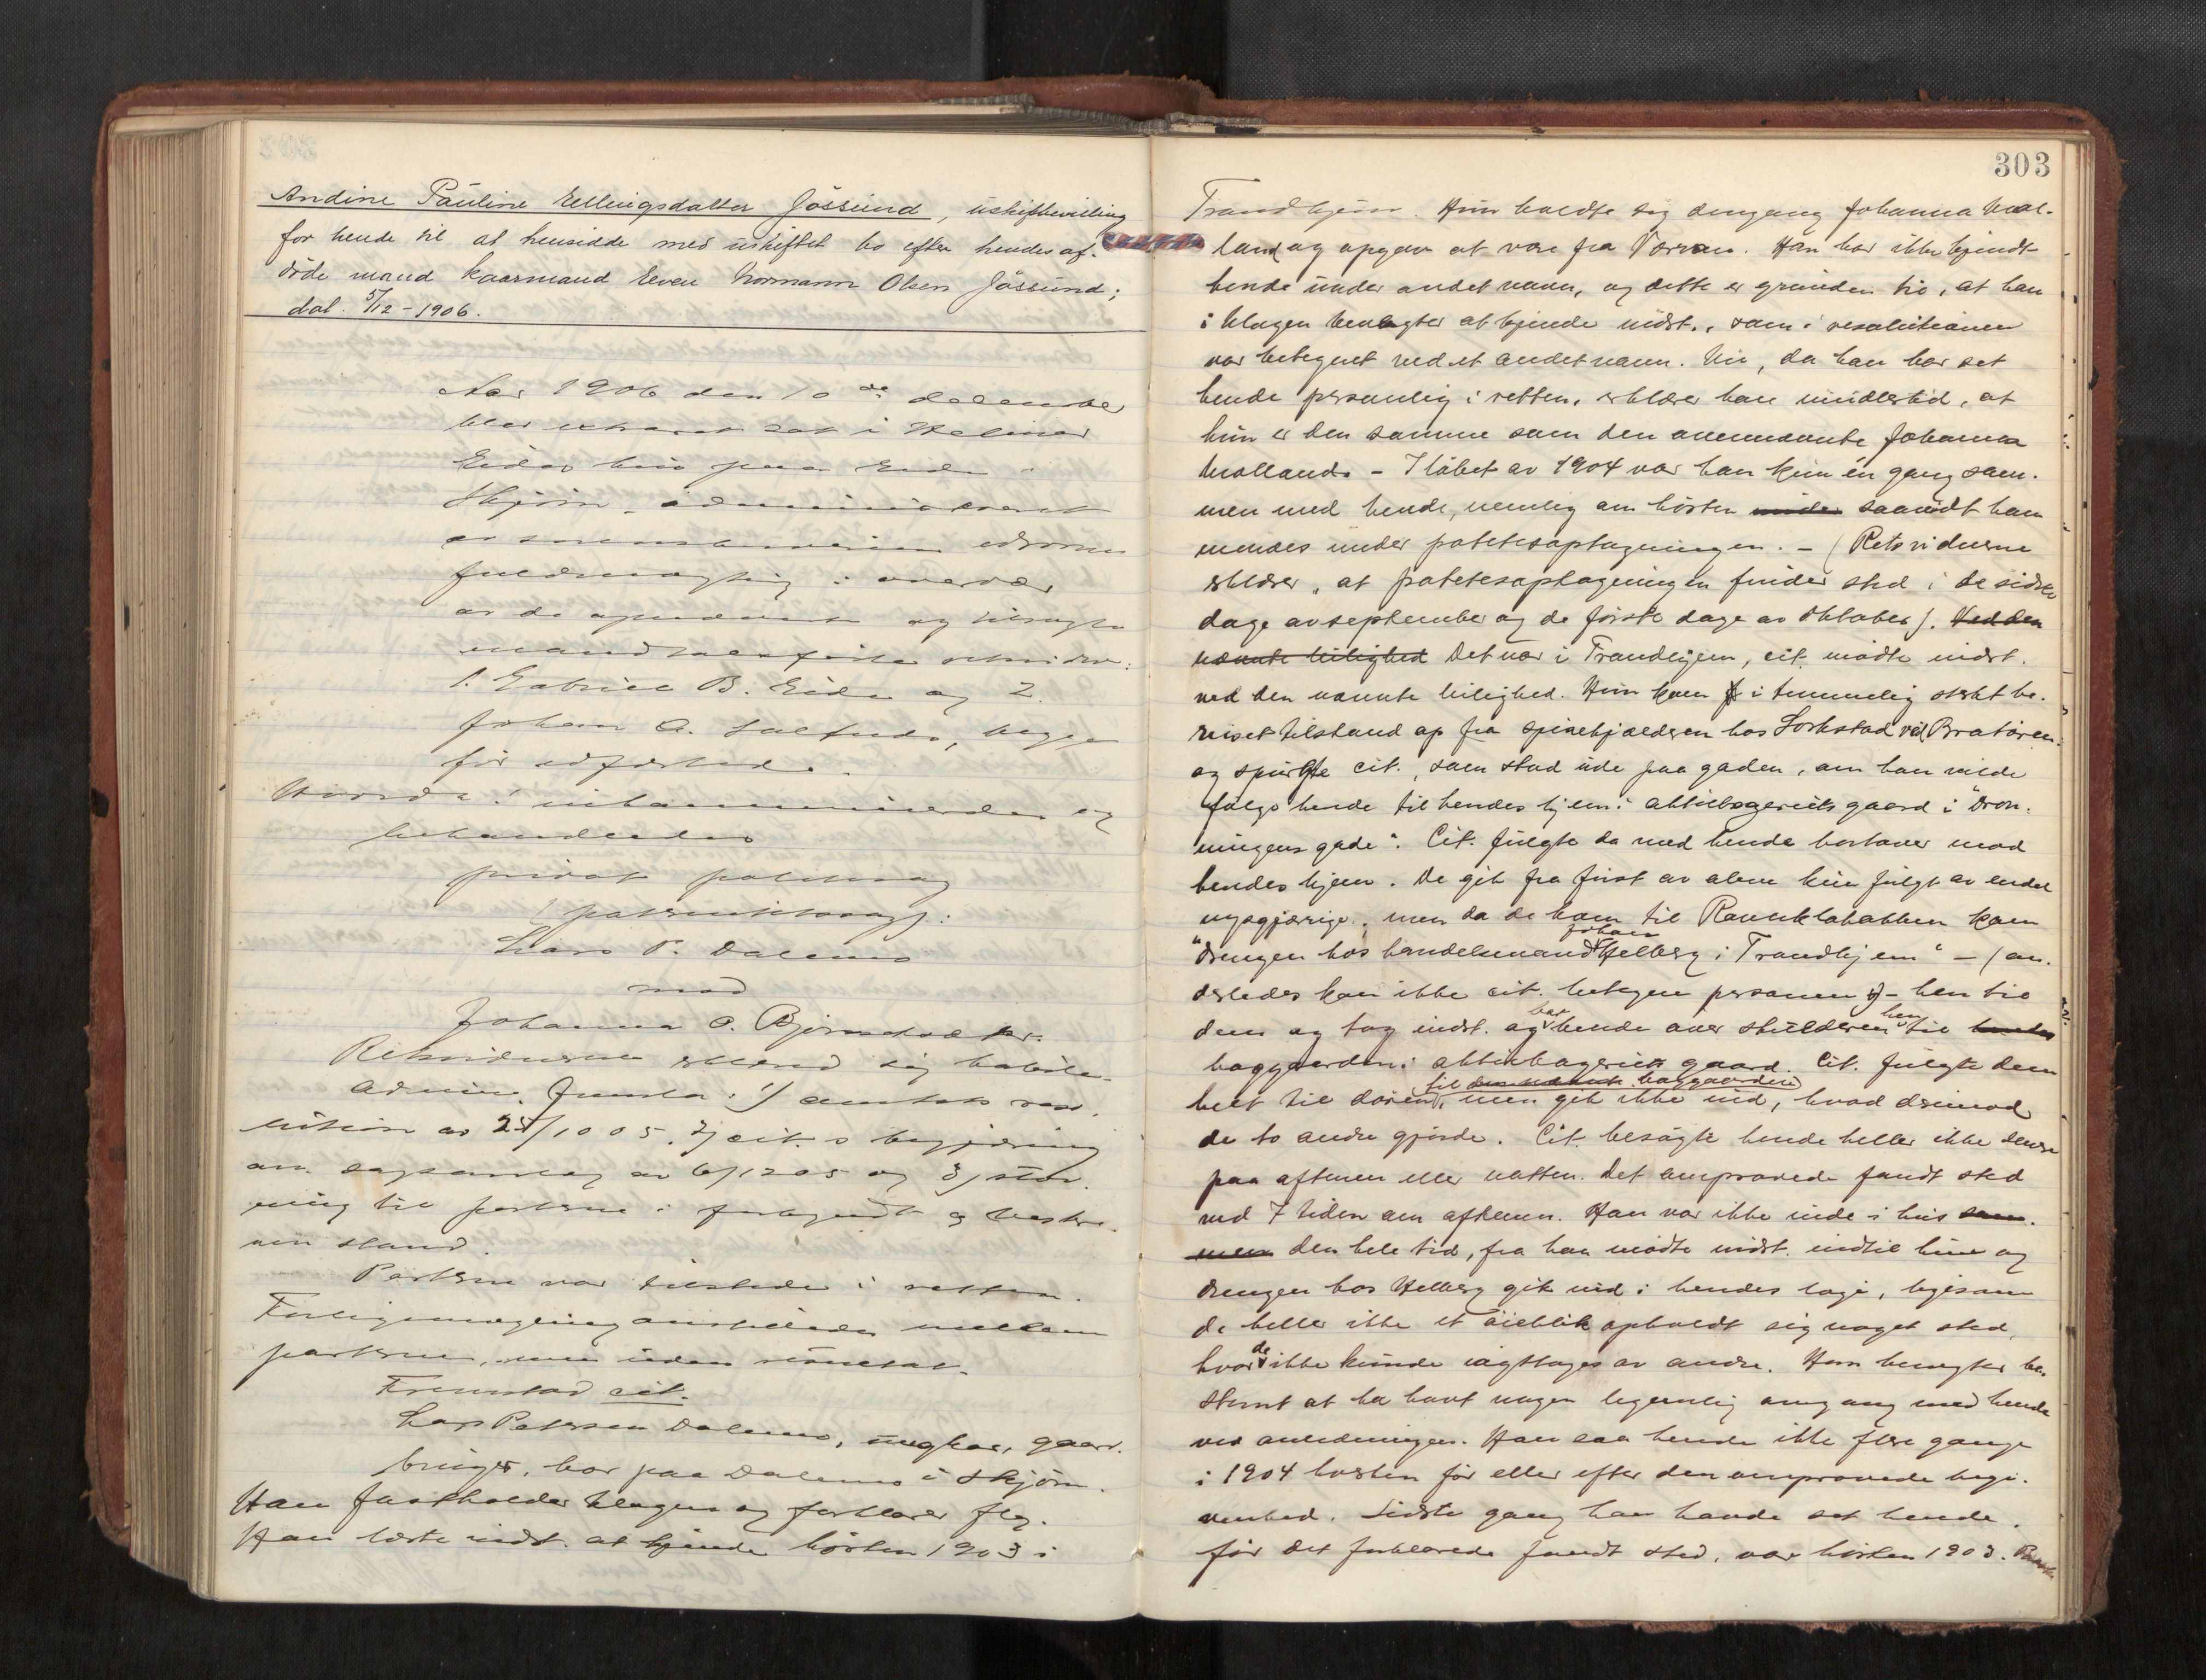 Andine Pauline Ellingsdatter Jössund, uskiftbevilling
for hende til at hensidde med uskiftet bo efter hendes af-
döde mand kaarmand Even Normann Olsen Jössund;
dat. 5/12-1906.
Aar 1906 den 10de december
blev extraret sat i
Eides hus paa Eide i
Skjörn, administreret
av sorenskriverens edsvorne
fuldmægtig i overvær
av de opnævnte og tilsagte
mandtalsförte retsvidner:
1. Gabriel B. Eide og 2.
Johan A. , begge
för edfæstede.
Hvorda: inkaminerdes og
behandledes
privat politisag
(paternitetssag):
Lars P. Dalemo
mod
Johanna O. Björndalseter.
Retsvidnerne erklærte sig habile.
Admin. fremla: 1) amtets reso-
lution av 25/10 05, 2) cit.s begjæring
om sagsanlæg av 6/12 05 og 3) stev-
ning til parterne i forkyndt og beskre-
ven stand.
Parterne var tilstede i retten.
Forligsmægling anstilledes mellem
parterne, men uden resultat.
Fremstod cit.
Lars Petersen Dalemo, ungkar, gaard-
bruger, bor paa Dalemo i Skjörn.
Han fastholder klagen og forklarer flg.
Han lærte indst. at kjende hösten 1903 i
303
Trondhjem. Hun kaldte sig dengang Johanna Mol-
land og opgav at være fra Værran. Han har ikke kjendt
hende under andet navn, og dette er grunden til, at han
i klagen benægter at kjende indst., som i resolutionen
var betegnet ved et andet navn. Nu, da han har set
hende personlig i retten, erklærer han imidlertid, at
hun er den samme som den ovennævnte Johanna
Molland. - I löbet av 1904 var han kun én gang sam-
men med hende, nemlig om hösten saavidt han
mindes under potetesoptagningen. - (Retsvidnerne
erklærer, at potetesoptagningen finder sted i de sidste
dage av september og de förste dage av oktober). Ved den
nævnte leilighed Det var i Trondhjem, cit. mödte indst.
ved den nævnte leilighed. Hun kom i temmelig sterkt be-
ruset tilstand op fra spisekjælderen hos Lorkstad ved Bratören
og spurgte cit., som stod ude paa gaden, om han vilde
fölge hende til hendes hjem i aktiebageriets gaard i "Dron-
ningens gade". Cit. fulgte da med hende bortover mod
hendes hjem. De gik fra först av alene kun fulgt av endel
nysgjærige, men da de kom til Ravnklobakken kom
Johan
"drengen hos handelsmand Helberg i Trondhjem" - (an-
derledes kan ikke cit. betegne personen) - hen til
bar hen
dem og tog indst. og hende over skulderen til
baggaarden i aktiebageriets gaard. Cit. fulgte dem
til den nævnte baggaarden
helt til dören, men gik ikke ind, hvad derimod
de to andre gjorde. Cit. besögte hende heller ikke senere
paa aftenen eller natten. Det omprovede fandt sted
ved 7 tiden om aftenen. Han var ikke inde i hus sam-
men den hele tid, fra han mödte indst. indtil hun og
drengen hos Helberg gik ind i hendes logi, ligesom
de heller ikke et öieblik opholdt sig noget sted,
de
hvor ikke kunde iagttages av andre. Han benegter be-
stemt at ha havt nogen legemlig omgang med hende
ved anledningen. Han saa hende ikke flere gange
i 1904 hösten för eller efter den omprovede begi-
venhed. Sidste gang han havde set hende,
för det forklarede fandt sted, var hösten 1903.